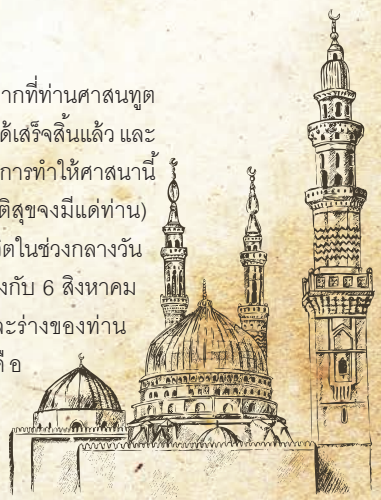 ากที่ท่านศาสนทูต
ด้เสร็จสิ้นแล้ว และ
การทำให้ศาสนานี้
ติสุขจงมีแด่ท่าน)
ในช่วงกลางวัน
งกับ 6 สิงหาคม
ะร่างของท่าน
คือ